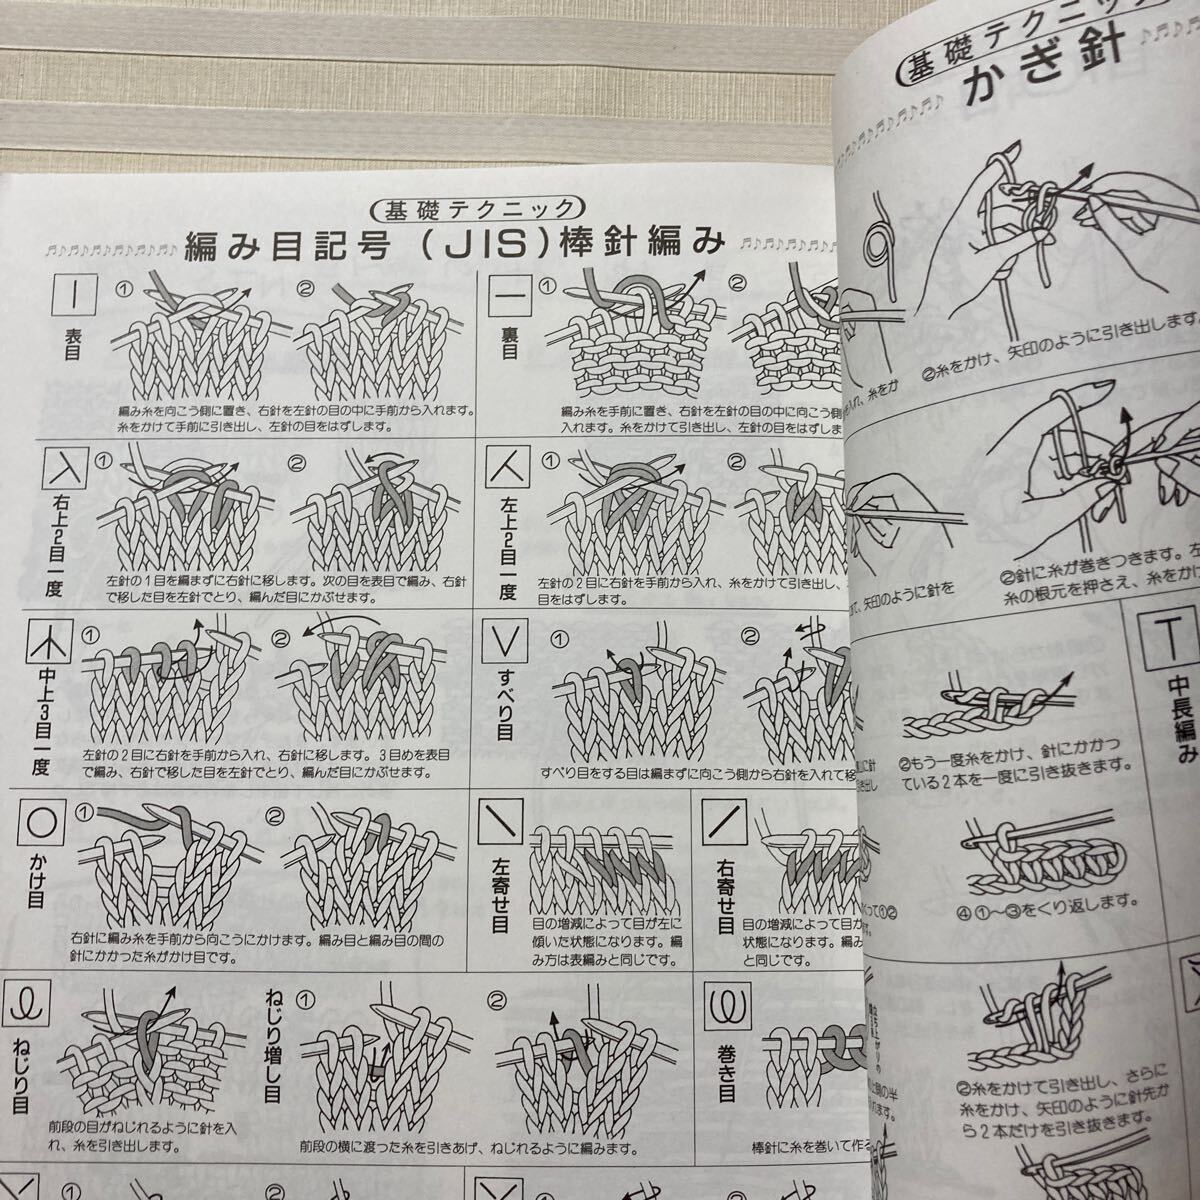 基礎テクニック
編み目記号(JIS)棒針編み
表目
①
②
編み糸を向こう側に置き、右針を左針の目の中に手前から入れます。
糸をかけて手前に引き出し、左針の目をはずします。
裏目
①
②
編み糸を手前に置き、右針を左針の目の中に向こう側
入れます。糸をかけて引き出し、左針の目をはずしま
右上2目一度
①
②
左針の1目を編まずに右針に移します。次の目を表目で編み、右針
で移した目を左針でとり、編んだ目にかぶせます。
左上2目一度
①
②
左針の2目に右針を手前から入れ、糸をかけて引き出し、
目をはずします。
中上3目一度
①
②
左針の2目に右針を手前から入れ、右針に移します。3目めを表目
で編み、右針で移した目を左針でとり、編んだ目にかぶせます。
すべり目
①
②
すべり目をする目は編まずに向こう側から右針を入れて移
かけ目
①
②
右針に編み糸を手前から向こうにかけます。編み目と編み目の間の
針にかかった糸がかけ目です。
左寄せ目
目の増減によって目が左に
傾いた状態になります。編
み方は表編みと同じです。
右寄せ目
目の増減によって目が
状態になります。編み
と同じです。
ねじり目
前段の目がねじれるように針を入
れ、糸を引き出します。
ねじり増し目
①
②
前段の横に渡った糸を引きあげ、ねじれるように編みます。
巻き目
棒針に糸を巻いて作る
①
②
①
基礎テクニック
かぎ針
入れ、糸をか
②糸をかけ、矢印のように引き出します。
て、矢印のように針を
②針に糸が巻きつきます。左
糸の根元を押さえ、糸をか
中長編み
②もう一度糸をかけ、針にかかっ
ている2本を一度に引き抜きます。
④①〜③をくり返します。
②糸をかけて引き出し、さらに
糸をかけ、矢印のように針先か
ら2本だけを引き抜きます。